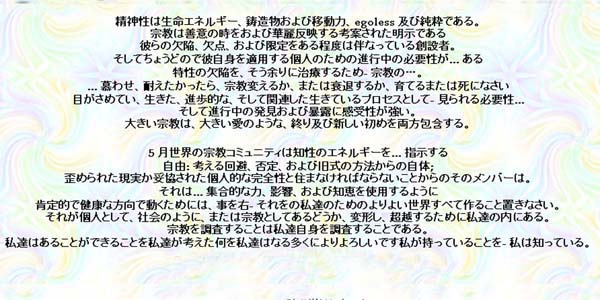 精神性は生命エネルギー、鋳造物および移動力、egoless 及び純粋である。
宗教は善意の時をおよび華麗反映する考案された明示である
彼らの欠陥、欠点、および限定をある程度は伴なっている創設者。
そしてちょうどので彼自身を適用する個人のための進行中の必要性が... ある
特性の欠陥を、そう余りに治療するため- 宗教の…。
... 慕わせ、耐えたかったら、宗教変えるか、または衰退するか、育てるまたは死になさい
目がさめてい、生きた、進歩的な、そして関連した生きているプロセスとして- 見られる必要性...
そして進行中の発見および暴露に感受性が強い。
大きい宗教は、大きい愛のような、終り及び新しい初めを両方包含する。
5 月世界の宗教コミュニティは知性のエネルギーを... 指示する
自由: 考える回避、否定、および旧式の方法からの自体;
歪められた現実か妥協された個人的な完全性と住まなければならないことからのそのメンバーは。
それは... 集合的な力、影響、および知恵を使用するように
肯定的で健康な方向で動くためには、事を右- それをの私達のためのよりよい世界すべて作ること置きなさい。
それが個人として、社会のように、または宗教としてあるどうか、変形し、超越するために私達の内にある。
宗教を調査することは私達自身を調査することである。
私達はあることができることを私達が考えた何を私達はなる多くによりよろしいです私が持っていることを- 私は知っている。